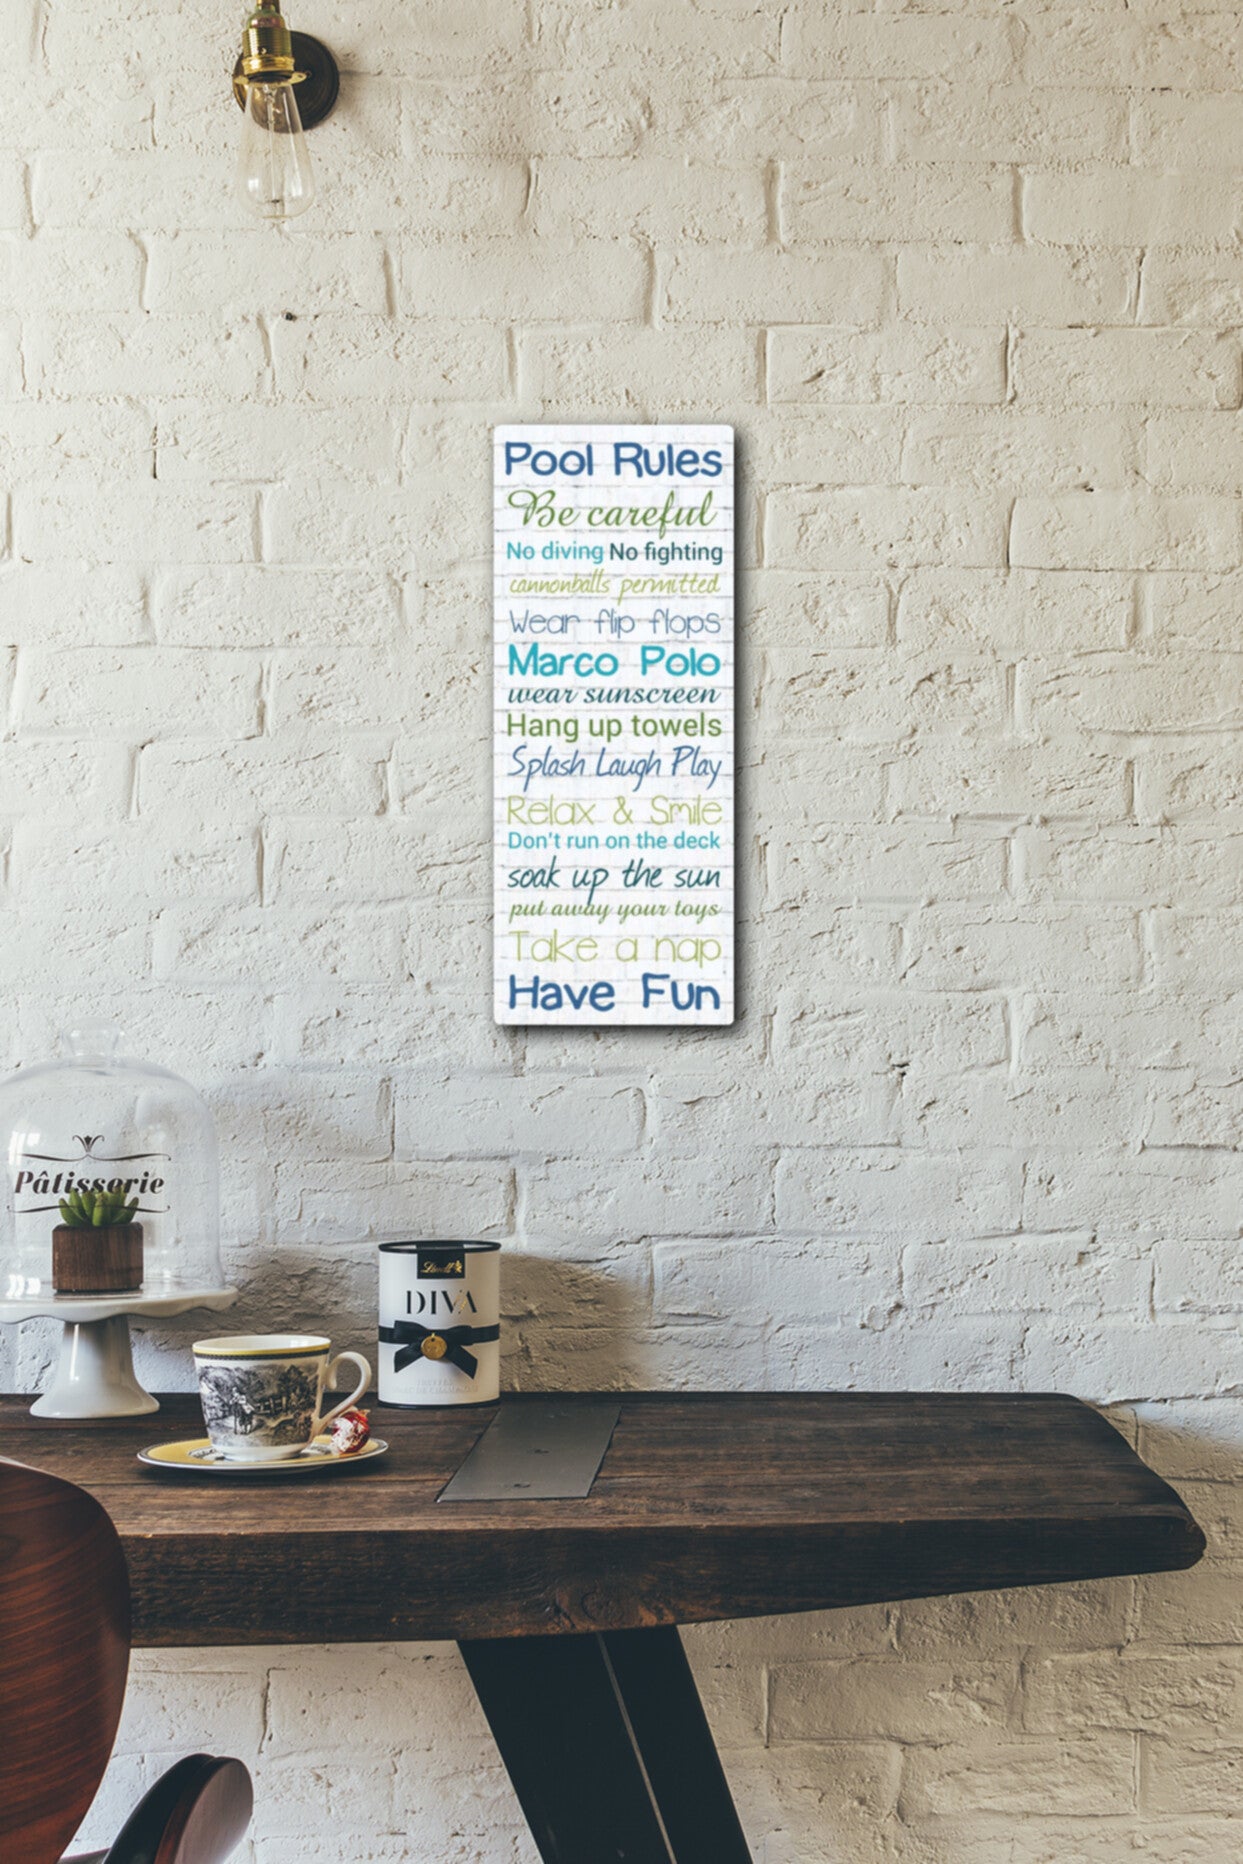 Pool Rules
Be careful
No diving No fighting
cannonballs permitted
Wear flip flops
Marco Polo
wear sunscreen
Hang up towels
Splash Laugh Play
Relax & Smile
Don't run on the deck
soak up the sun
put away your toys
Take a nap
Have Fun
Pâtisserie
Lindt
DIVA